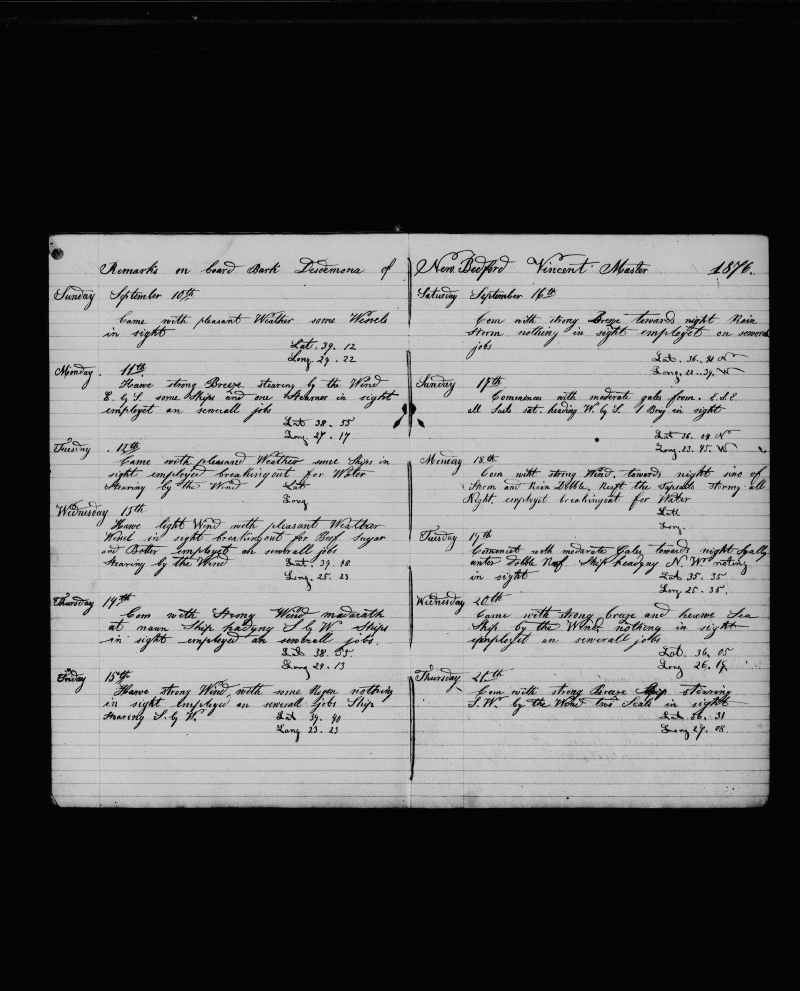 Remarks on board Bark Desdemona of
Sunday September 10th
Came with pleasant Weather some Wessels
in sight
Lat. 39. 12
Long. 29. 22
Monday. 11th
Hawe strong Breeze. stearing by the Wind
E. by S. some Ships and one Steamer in sight
employet an sewerall jobs
Lat. 38. 55
Long 27. 17
Tuesday. 12th
Came with pleasand Weather some Ships in
sight employed breakingout for Water
Stearing by the Wind Latt
Long
Wednesday 13th
Hawe light Wind with pleasant Weather
in sight breakingout for Beef sugar
and Botter employet an sewerall jobs
stearing by the Wind Lat. 39. 48
Long. 25. 23
Thursday 14th
Com with Strong Wind madarath
at naun Ship hadyng S by W. Ships
in sight employed an sewerall jobs.
Lat 38. 55.
Long 24. 13
Friday 15th
Hawe strong Wind, with some Regen nothing
in sight Employed an sewerall jobs Ship
stearing S. by W. Lat 37. 40
Long 23. 23
New. Bedford Vincent Master 1876.
Saturday September 16th
Com with strong Breeze towards night Rain
Storm nothing in sight employet on sewerall
jobs
Lat. 36. 41 N
Long. 22. 39. W
Sunday 17th
Commences with moderate gales from. E.S.E.
all Sails sat. heading W. by S. 1 Brig in sight
Lat 36. 09 N
Long. 23. 45. W
Monday 18th
Com witt strong Wind, towards night sinc of
Storm and Rain Dobble. Reeft the Topsails Stormy all
Night. employet breakingout for Water
Latt
Long.
Tuesday 19th
Comencet with moderate Gales towards night Sqally
unter dobble Reef Ship headyng N. W. noting
in sight Lat 35. 35
Long 25. 35.
Wednesday 20th
Came with strong breeze and heawe Sea
Ship by the Wind, nothing in sight
employet an sewerall jobs
Lat. 36. 05
Long 26. 17.
Thursday 21th
Com with strong Breeze Ship stearing
S.W. by the Wind two Seals in sight
Lat 36. 31
Long 27. 08.